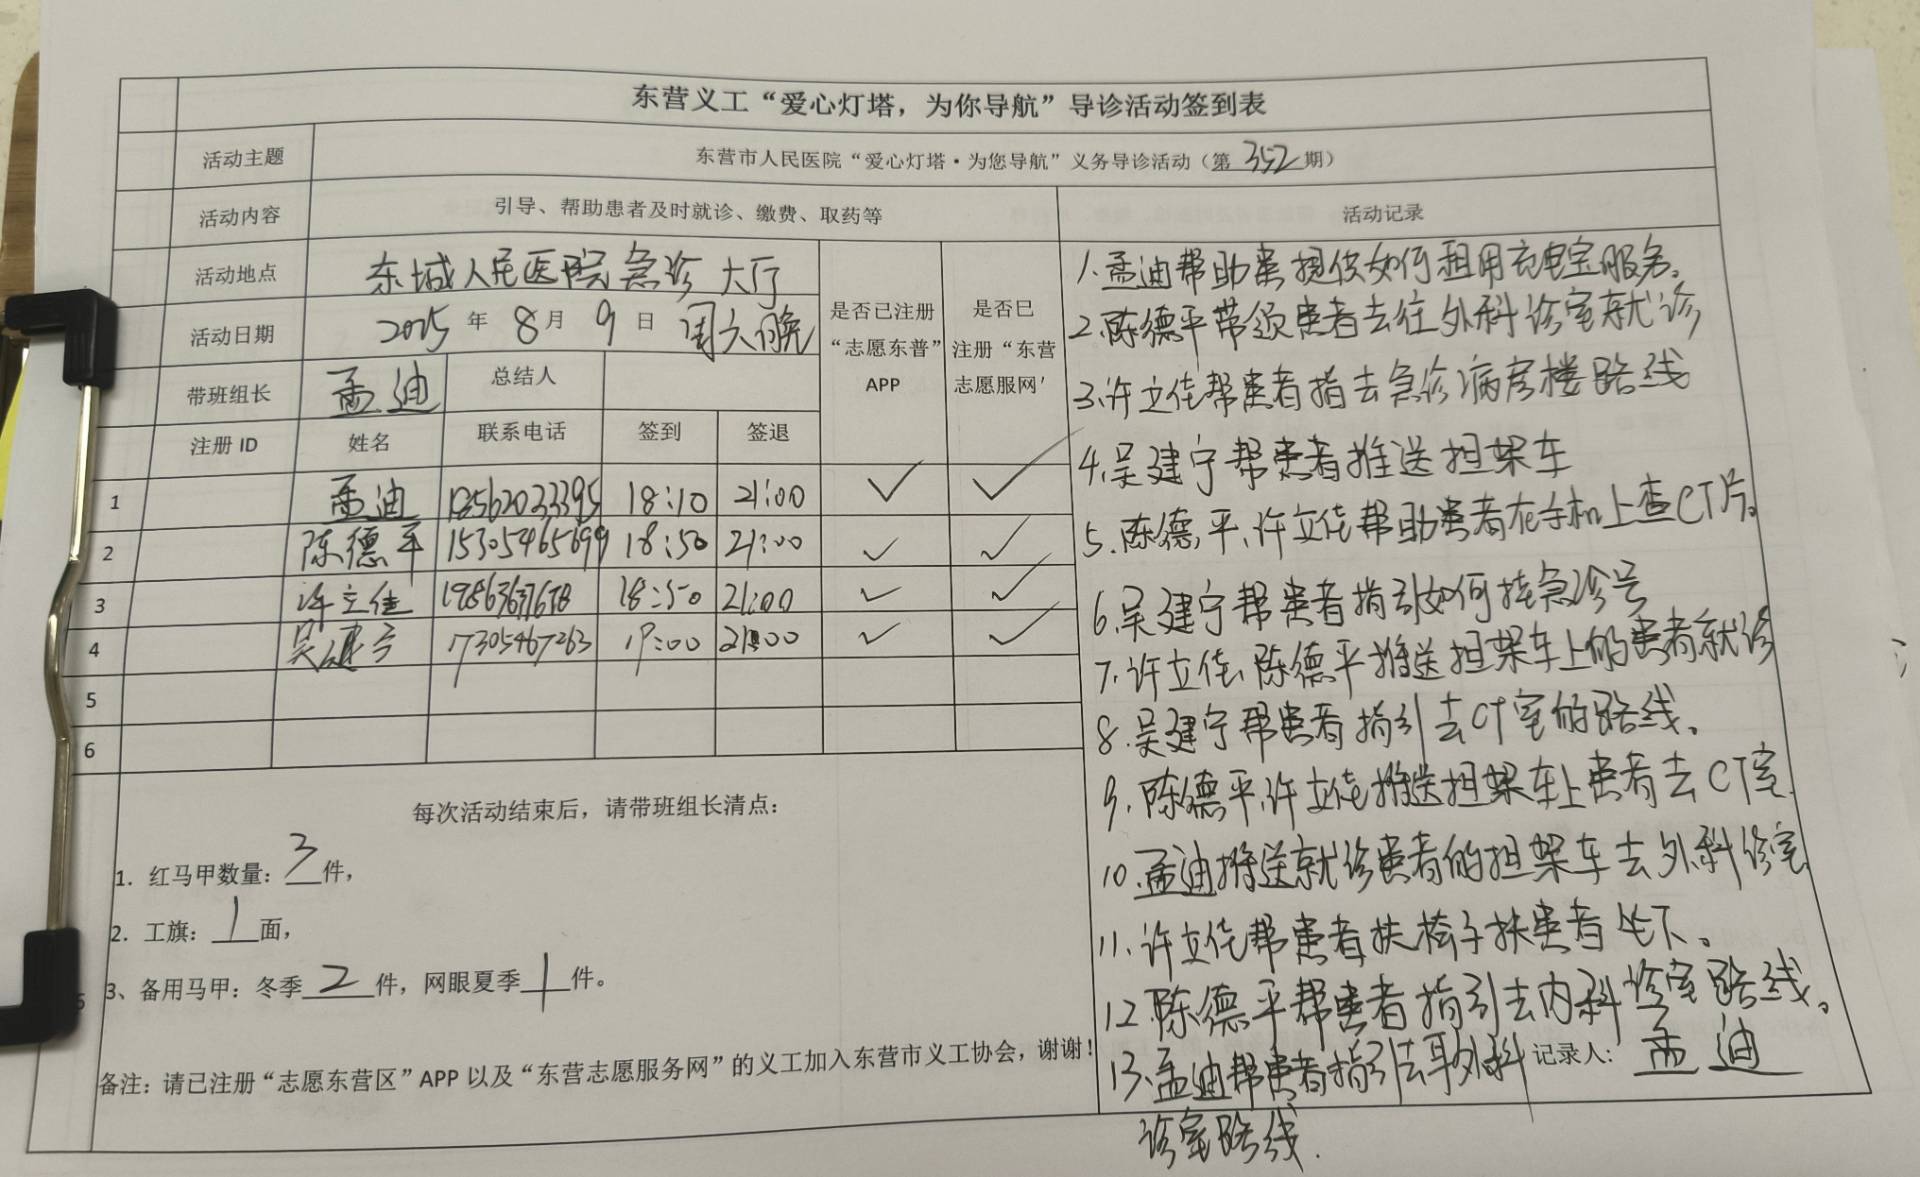 东营义工“爱心灯塔，为你导航”导诊活动签到表
活动主题 东营市人民医院“爱心灯塔·为您导航”义务导诊活动（第352期）
活动内容 引导、帮助患者及时就诊、缴费、取药等 活动记录
活动地点 东城人民医院急诊大厅
活动日期 2025年8月9日 周六晚
是否已注册“志愿东普”APP
是否已注册“东营志愿服网’
带班组长 孟迪 总结人
注册ID 姓名 联系电话 签到 签退
1 孟迪 18562033395 18:10 21:00 ✓ ✓
2 陈德平 15305465699 18:50 21:00 ✓ ✓
3 许立佳 18:50 21:00 ✓ ✓
4 吴建宁 17305467263 19:00 21:00 ✓ ✓
5
6
每次活动结束后，请带班组长清点：
1. 红马甲数量：3件，
2. 工旗：1面，
3、备用马甲：冬季2件，网眼夏季1件。
备注：请已注册“志愿东营区”APP以及“东营志愿服务网”的义工加入东营市义工协会，谢谢！
1.孟迪帮助患提供如何租用充电宝服务。
2.陈德平带领患者去往外科诊室就诊
3.许立佳帮患者指去急诊病房楼路线
4.吴建宁帮患者推送担架车
5.陈德平、许立佳帮助患者在手机上查CT片。
6.吴建宁帮患者指引如何挂急诊号
7.许立佳、陈德平推送担架车上的患者就诊
8.吴建宁帮患者指引去CT室的路线。
9.陈德平、许立佳推送担架车上患者去CT室.
10.孟迪推送就诊患者的担架车去外科诊室
11.许立佳帮患者扶椅子扶患者坐下。
12.陈德平帮患者指引去内科诊室路线。
13.孟迪帮患者指引去耳外科
诊室路线.
记录人：孟迪